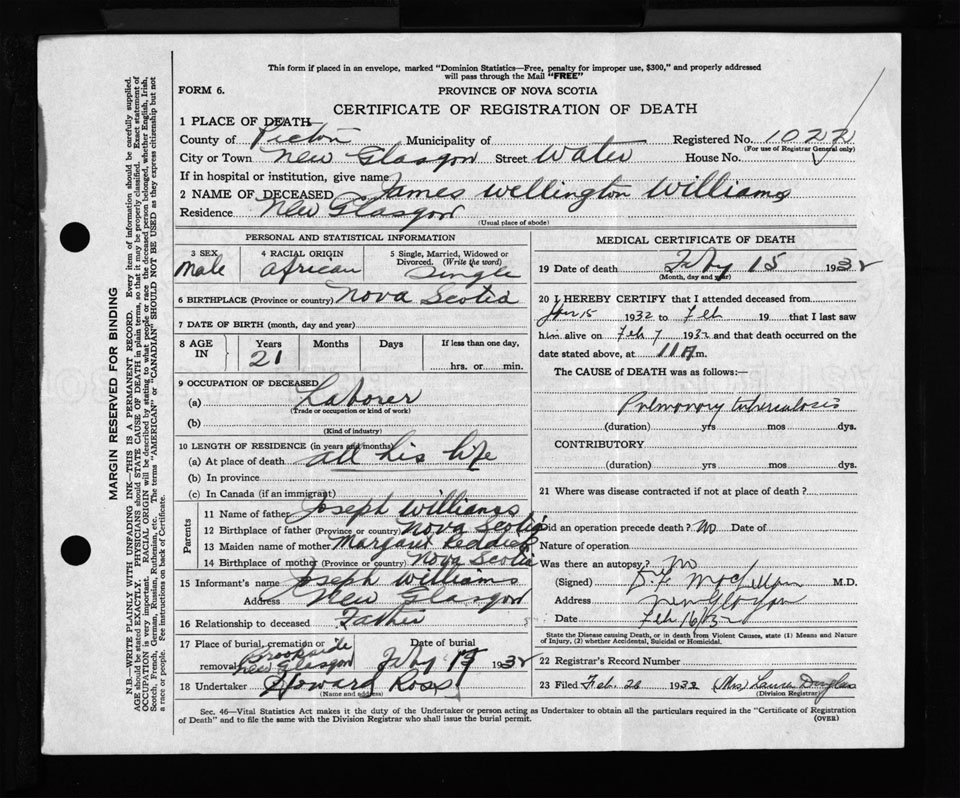 This form if placed in an envelope, marked "Dominion Statistics—Free, penalty for improper use, $300," and properly addressed
will pass through the Mail "FREE"
FORM 6. PROVINCE OF NOVA SCOTIA
CERTIFICATE OF REGISTRATION OF DEATH
1 PLACE OF DEATH
County of Pictou Municipality of Registered No. 1022
(For use of Registrar General only)
City or Town New Glasgow Street Water House No.
If in hospital or institution, give name
2 NAME OF DECEASED James Wellington Williams
Residence New Glasgow
(Usual place of abode)
PERSONAL AND STATISTICAL INFORMATION
3 SEX Male
4 RACIAL ORIGIN African
5 Single, Married, Widowed or Divorced. (Write the word) Single
6 BIRTHPLACE (Province or country) Nova Scotia
7 DATE OF BIRTH (month, day and year)
8 AGE IN Years 21 Months Days If less than one day, hrs. or min.
9 OCCUPATION OF DECEASED
(a) Laborer
(Trade or occupation or kind of work)
(b)
(Kind of industry)
10 LENGTH OF RESIDENCE (in years and months)
(a) At place of death all his life
(b) In province
(c) In Canada (if an immigrant)
Parents
11 Name of father Joseph Williams
12 Birthplace of father (Province or country) Nova Scotia
13 Maiden name of mother Margaret Reddick
14 Birthplace of mother (Province or country) Nova Scotia
15 Informant's name Joseph Williams
Address New Glasgow
16 Relationship to deceased Father
17 Place of burial, cremation or removal Brookside New Glasgow
Date of burial Feby 1932
18 Undertaker Howard Ross
(Name and address)
MEDICAL CERTIFICATE OF DEATH
19 Date of death Feby 15 1932
(Month, day and year)
20 I HEREBY CERTIFY that I attended deceased from
Jan 15 1932 to Feb 19 that I last saw
him alive on Feb 7 1932 and that death occurred on the
date stated above, at 11 m.
The CAUSE of DEATH was as follows:—
Pulmonary tuberculosis
(duration) yrs mos dys.
CONTRIBUTORY
(duration) yrs mos dys.
21 Where was disease contracted if not at place of death?
Did an operation precede death? No Date of
Nature of operation
Was there an autopsy? No
(Signed) M.D.
Address New Glasgow
Date Feb 16/32
State the Disease causing Death, or in death from Violent Causes, state (1) Means and Nature
of Injury, (2) whether Accidental, Suicidal or Homicidal.
22 Registrar's Record Number
23 Filed Feb. 1932 (Mrs) Laura Douglas
(Division Registrar)
Sec. 46—Vital Statistics Act makes it the duty of the Undertaker or person acting as Undertaker to obtain all the particulars required in the "Certificate of Registration
of Death" and to file the same with the Division Registrar who shall issue the burial permit. (OVER)
MARGIN RESERVED FOR BINDING
N.B.—WRITE PLAINLY WITH UNFADING INK—THIS IS A PERMANENT RECORD. Every item of information should be carefully supplied.
AGE should be stated EXACTLY. PHYSICIANS should STATE CAUSE OF DEATH in plain terms, so that it may be properly classified. Exact statement of
OCCUPATION is very important. RACIAL ORIGIN will be described by stating to what people or race the deceased person belonged, whether English, Irish,
Scotch, French, German, Russian, Ruthenian, etc. The terms "AMERICAN" or "CANADIAN" SHOULD NOT BE USED as they express citizenship but not
a race or people. See instructions on back of Certificate.